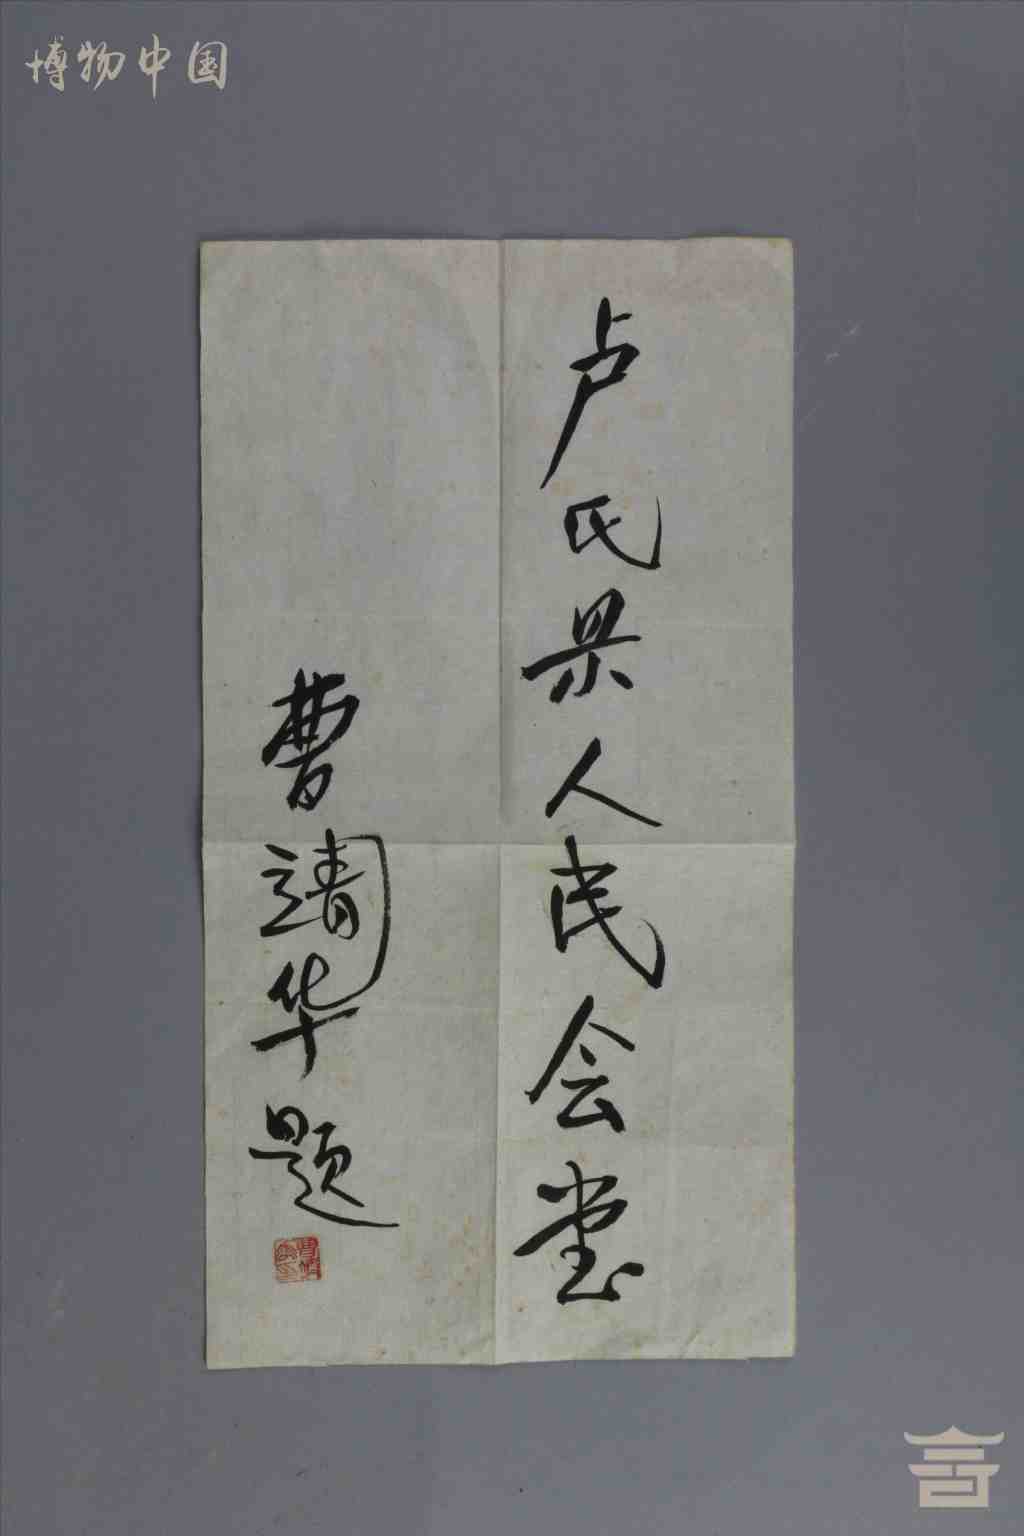 博物中国
卢氏县人民会堂
曹靖华题